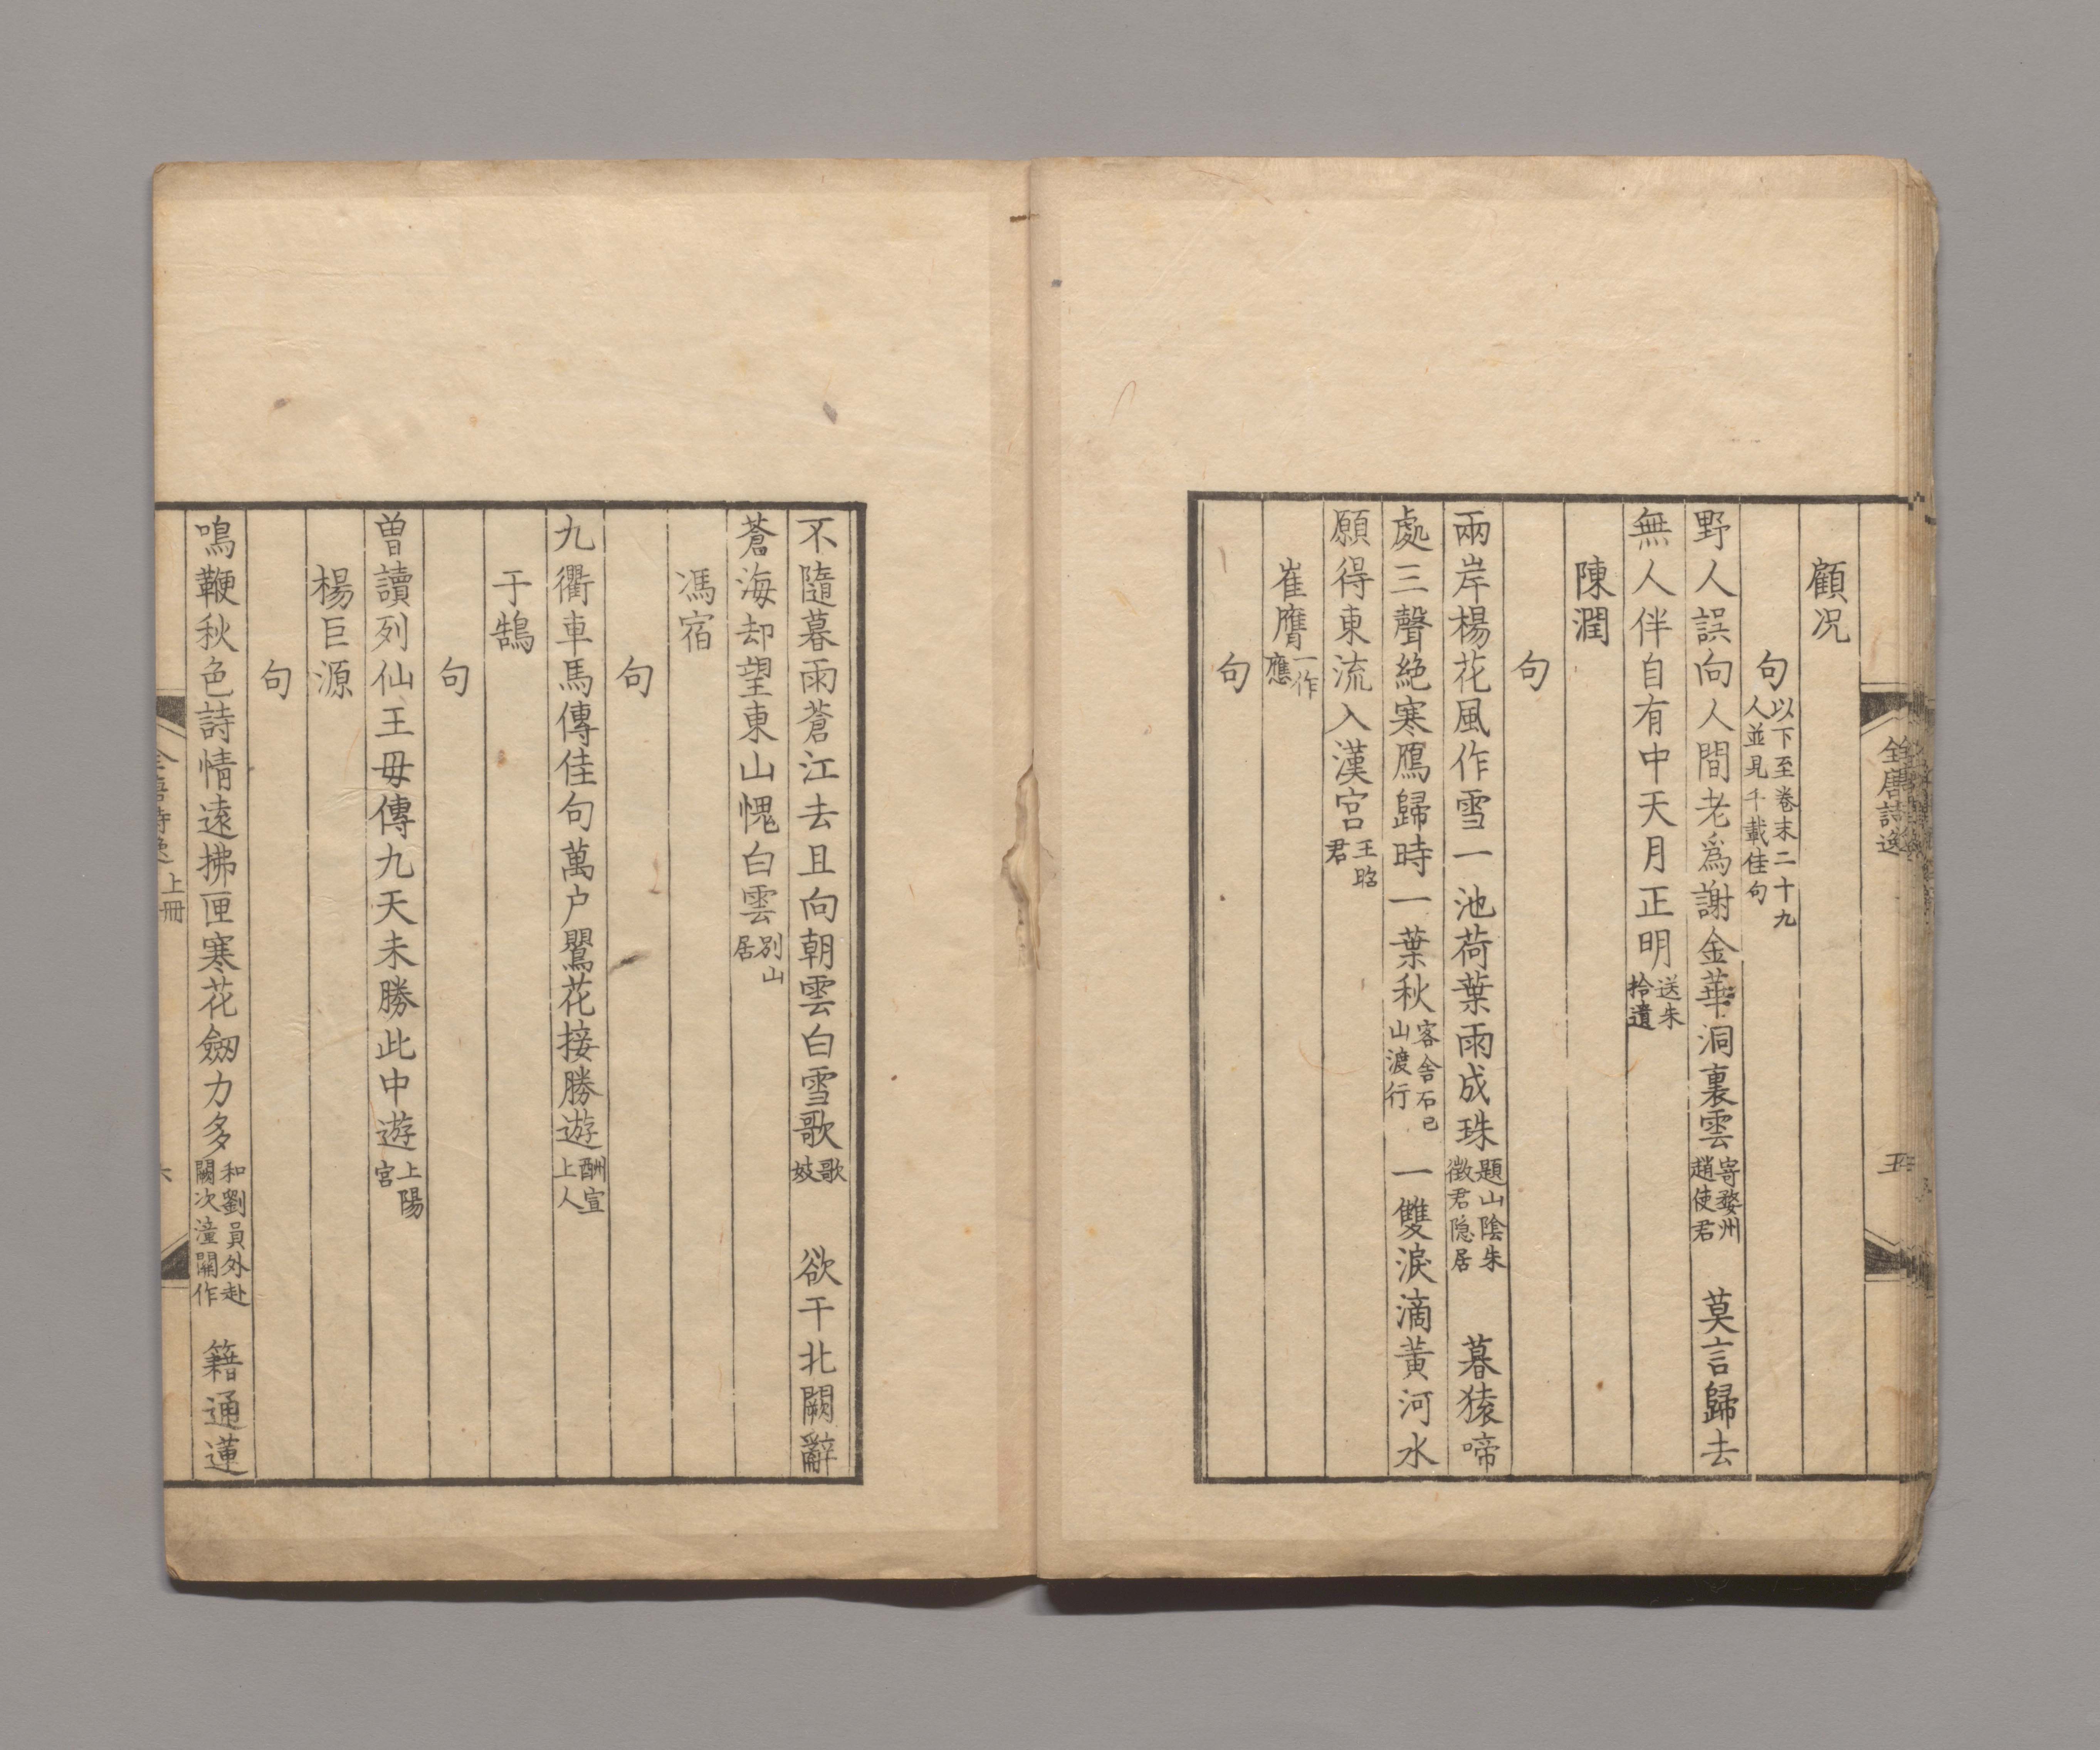 全唐詩逸
五
顧况
句以下至卷末二十九人並見千載佳句
野人誤向人間老爲謝金華洞裏雲寄婺州趙使君　莫言歸去
無人伴自有中天月正明送朱拾遺
陳潤
句
兩岸楊花風作雪一池荷葉雨成珠題山陰朱徵君隐居　暮猿啼
處三聲絶寒鴈歸時一葉秋客舍石巳山渡行　一雙淚滴黃河水
願得東流入漢宮王昭君
崔膺一作應
句
不隨暮雨蒼江去且向朝雲白雪歌歌妓　欲干北闕辭
蒼海却望東山愧白雲別山居
馮宿
句
九衢車馬傳佳句萬户鸎花接勝遊酬宣上人
于鵠
句
曽讀列仙王毋傳九天未勝此中遊上陽宮
楊巨源
句
鳴鞭秋色詩情遠拂匣寒花劒力多和劉員外赴闕次潼關作　籍通蓮
上冊